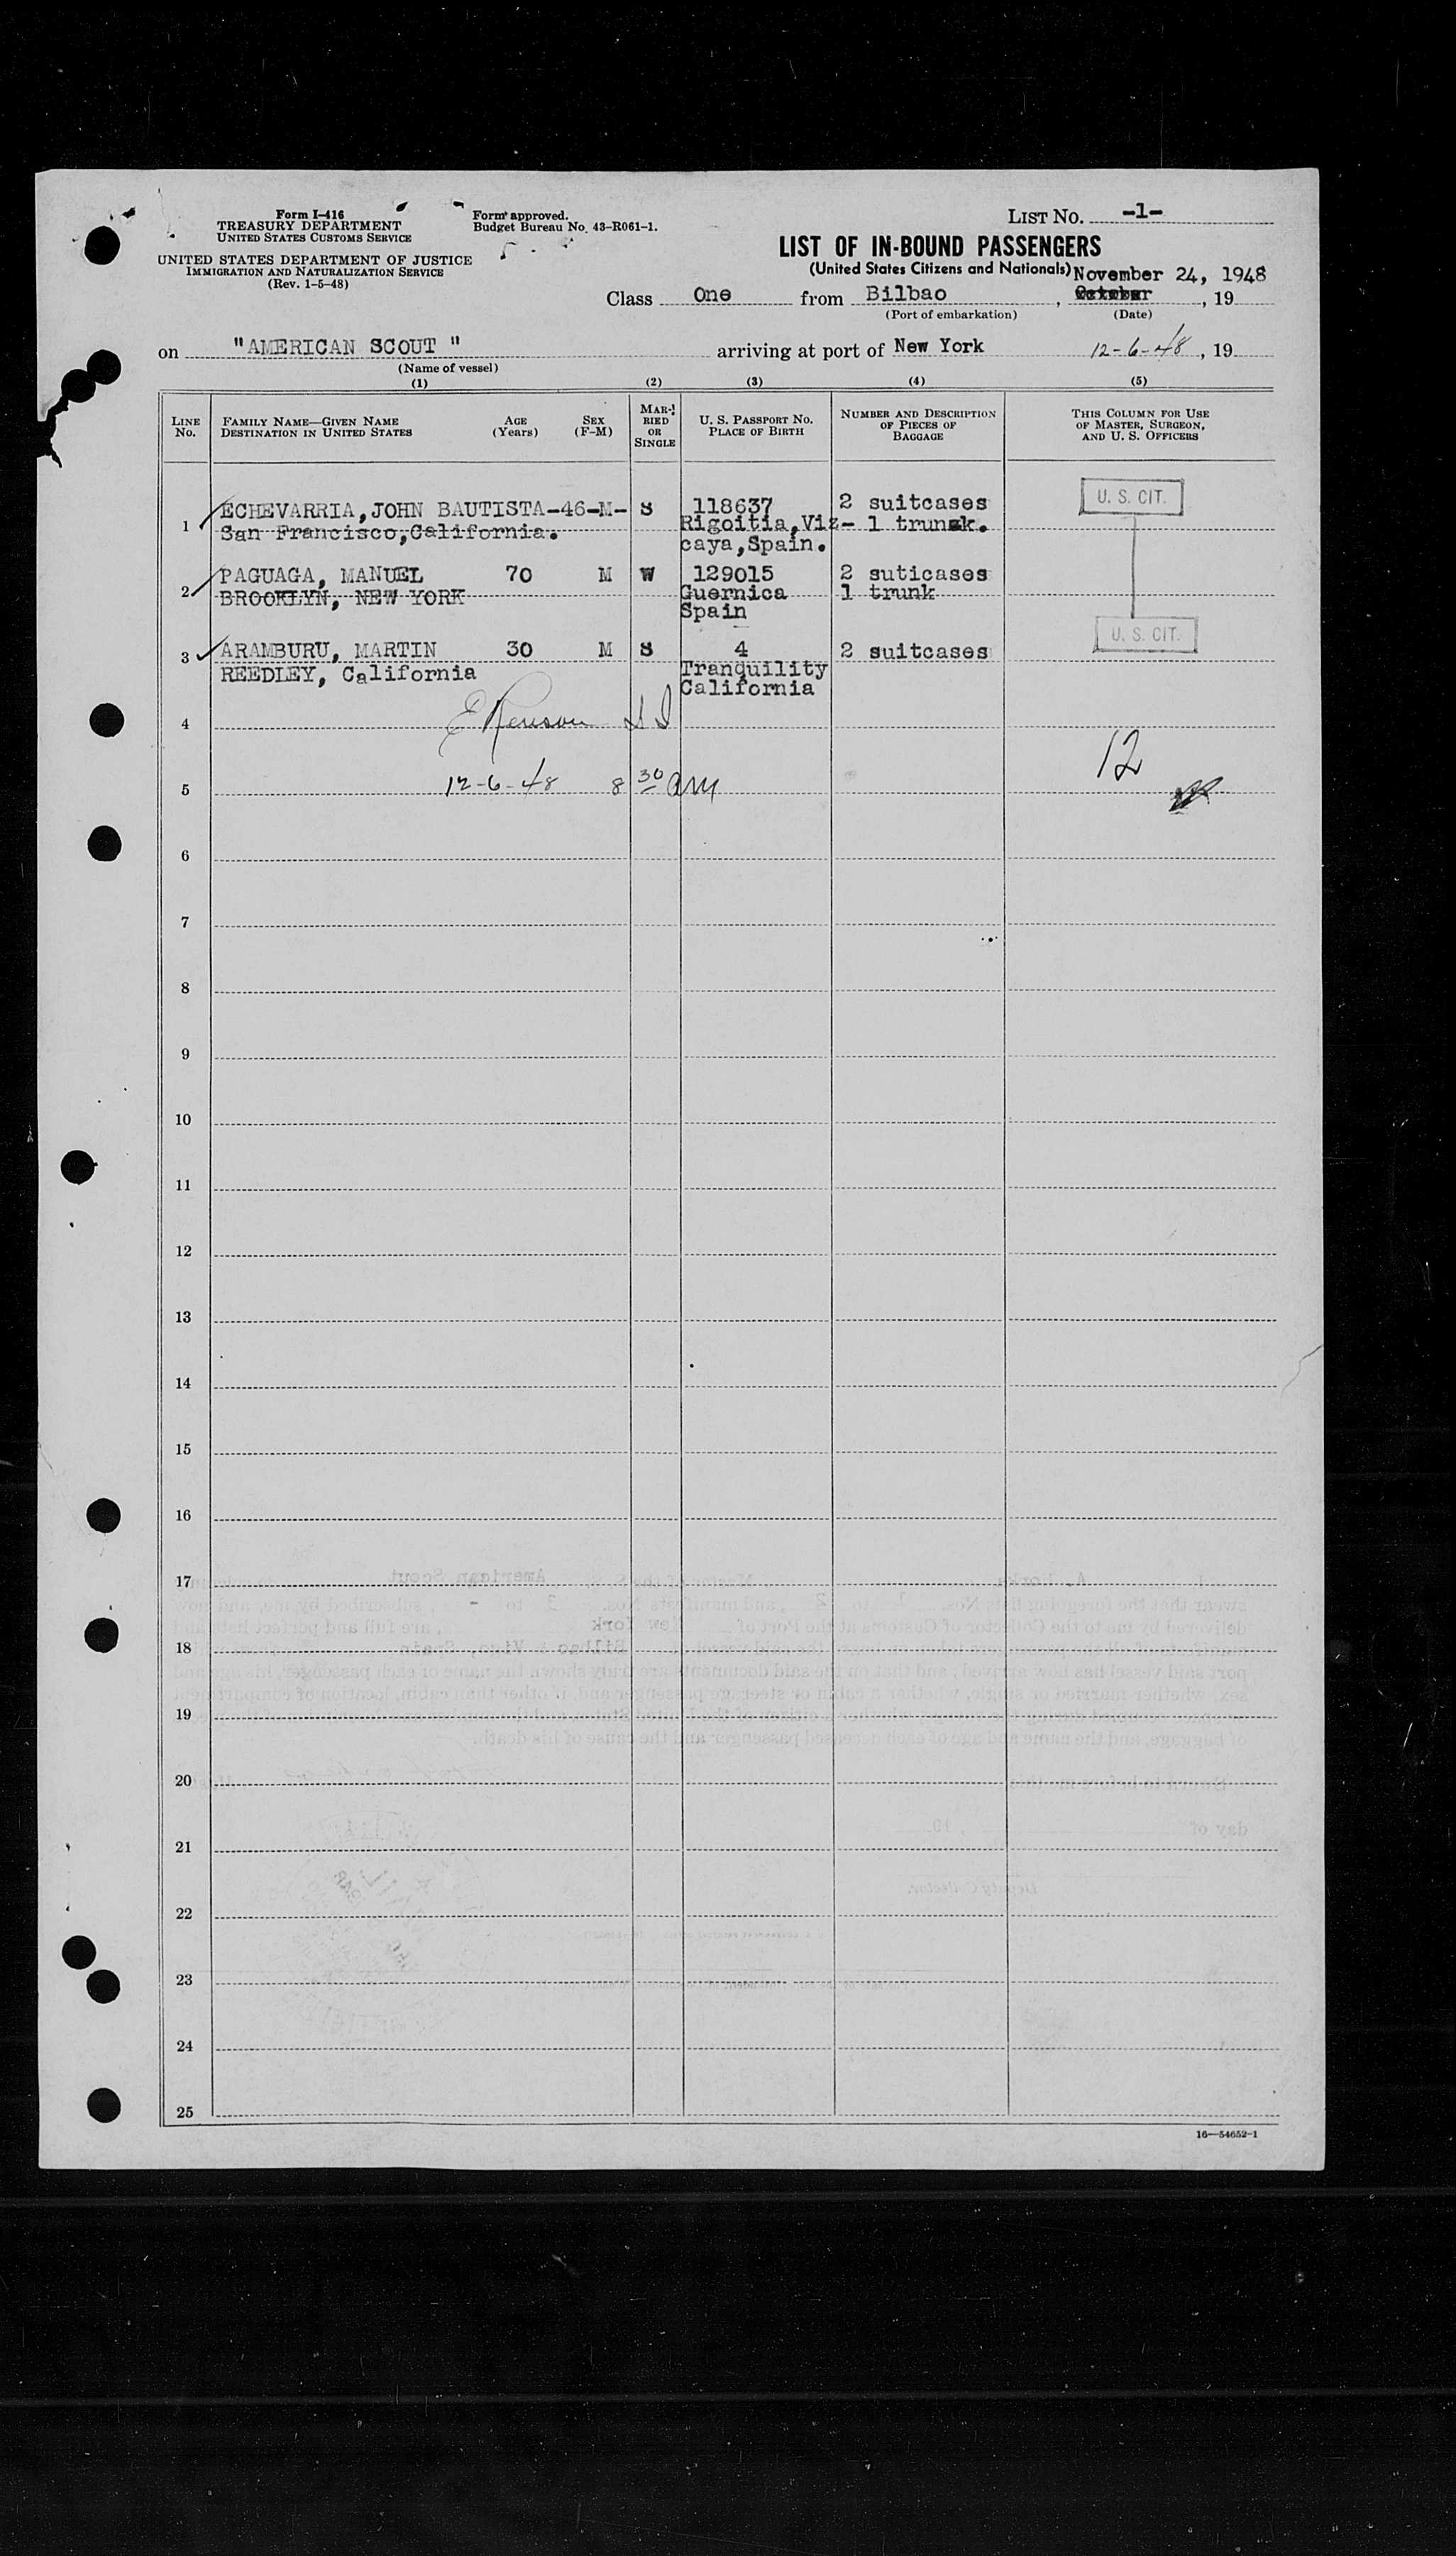 Form I-416
TREASURY DEPARTMENT
UNITED STATES CUSTOMS SERVICE
UNITED STATES DEPARTMENT OF JUSTICE
IMMIGRATION AND NATURALIZATION SERVICE
(Rev. 1-5-48)
Form approved.
Budget Bureau No. 43-R061-1.
LIST NO. -1-
LIST OF IN-BOUND PASSENGERS
(United States Citizens and Nationals) November 24, 1948
Class One from Bilbao , October , 19
(Port of embarkation) (Date)
on "AMERICAN SCOUT " arriving at port of New York 12-6-48 , 19
(Name of vessel)
(1) (2) (3) (4) (5)
LINE NO. FAMILY NAME—GIVEN NAME DESTINATION IN UNITED STATES AGE (Years) SEX (F-M) MARRIED OR SINGLE U. S. PASSPORT NO. PLACE OF BIRTH NUMBER AND DESCRIPTION OF PIECES OF BAGGAGE THIS COLUMN FOR USE OF MASTER, SURGEON, AND U. S. OFFICERS
1 ECHEVARRIA,JOHN BAUTISTA-46-M- S 118637 2 suitcases U. S. CIT.
San Francisco,California. Rigoitia,Viz- 1 trunk.
caya,Spain.
2 PAGUAGA, MANUEL 70 M W 129015 2 suticases
BROOKLYN, NEW YORK Guernica 1 trunk
Spain
3 ARAMBURU, MARTIN 30 M S 4 2 suitcases U. S. CIT.
REEDLEY, California Tranquility
California
4
12
5 12-6-48 8 30 am
6
7
8
9
10
11
12
13
14
15
16
17
18
19
20
21
22
23
24
25
16—54652-1